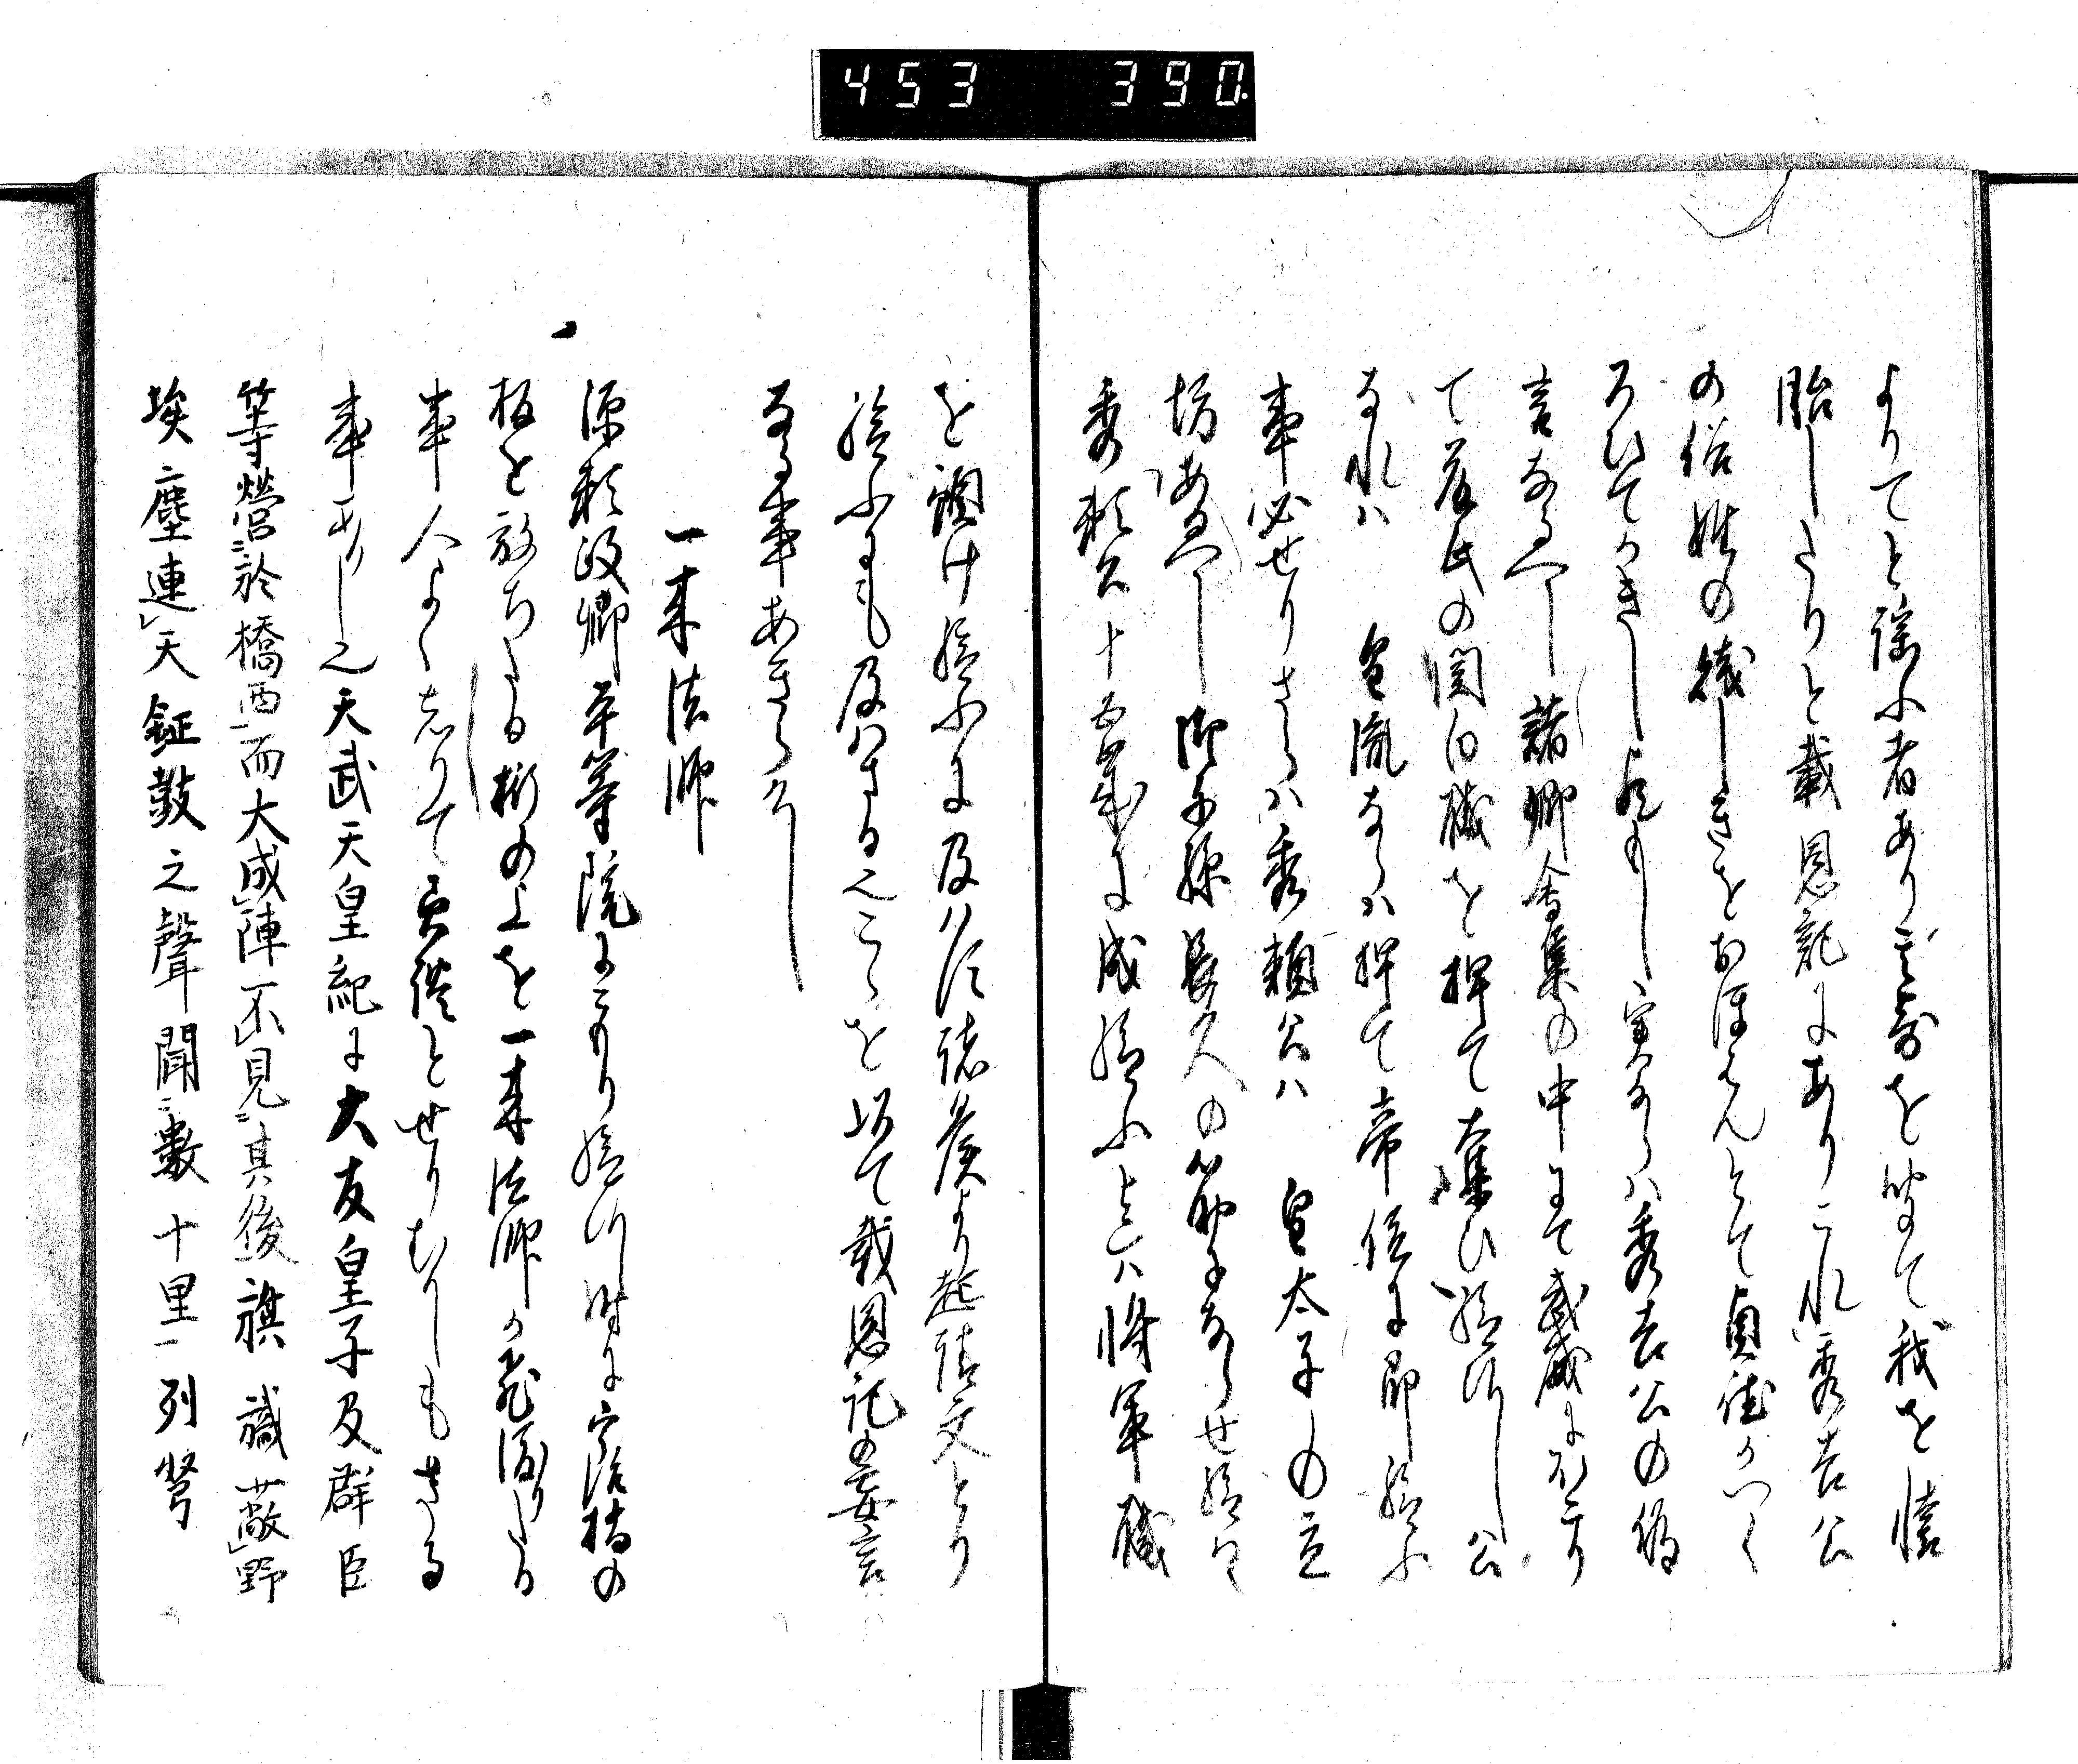 453 390.
よりてと謡ふ者あり其哥を皆て我を懐
胎したりと載恩記にありこれ秀吉公
の俗姓の賤しきをおほはんとて貞徳かつく
ろひてかきし成へし実ならハ秀吉公の偽
言なるへし諸卿会集の中にて威厳にほこり
て存此の関白職を押て奪ひ給ひし公
なれハ皇胤ならハ押て帝位に即給ふ
事必せりさらハ秀頼公ハ皇太子の立
坊あるへし御子孫長久の筋ならせ給はす
秀頼公十五歳に成給ふ上ハ将軍職
を譲け給ふに及ハす諸侯より起請文とり
給ふにも及はさる也こゝを以て戴恩記の妄言
なる事あきらけし
一来法師
源頼政卿平等院にこもり給ひし時に宇治橋の
板を放ちたる桁の上を一来法師か飛渡りたる
事人よくしりて美談とせりむかしもさる
事ありし也天武天皇紀に大友皇子及群臣
等營於橋西而大成陣不見其後旗幟蔽野
埃塵連天鉦鼓之聲聞數十里列弩